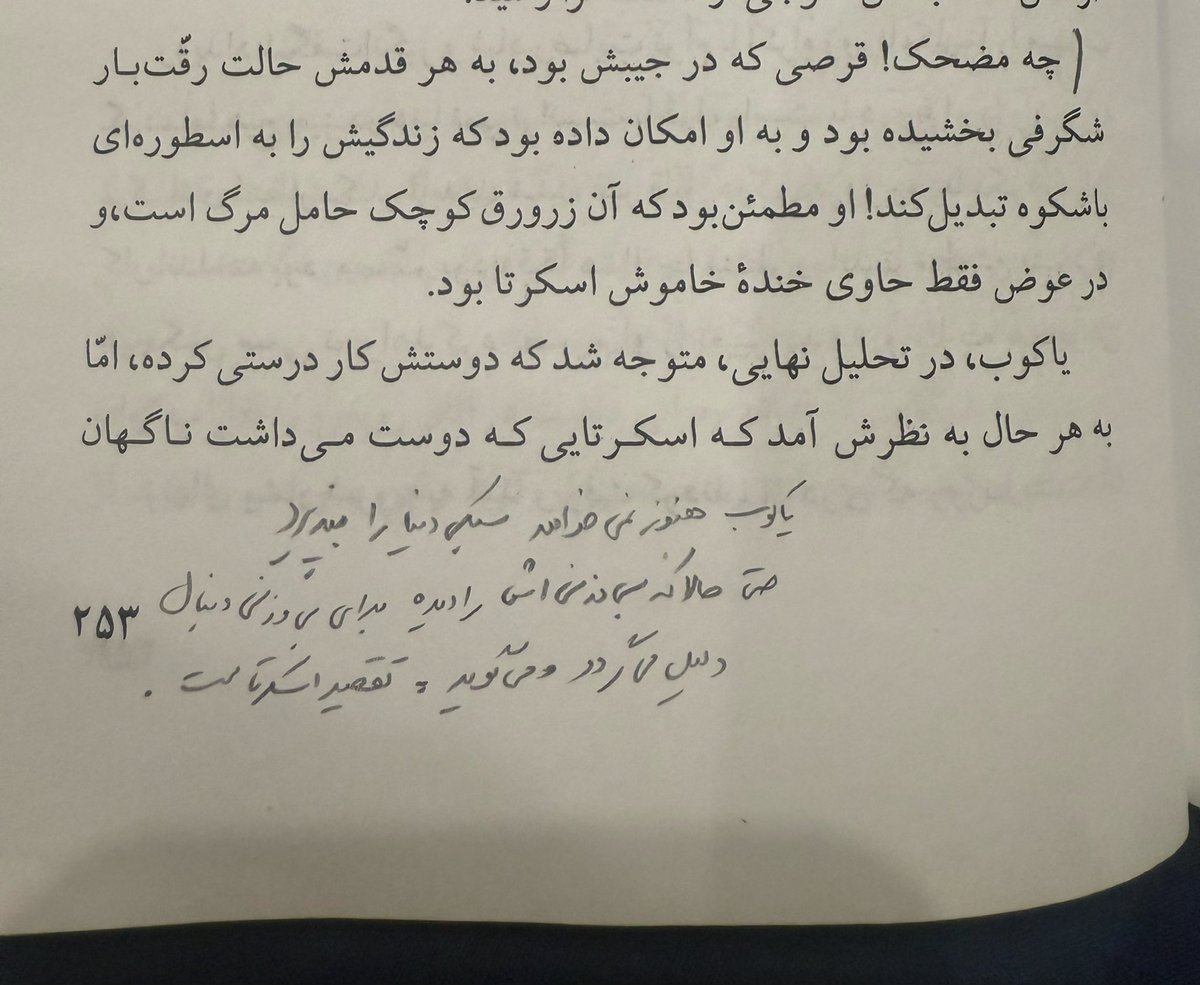 ( چه مضحک! قرصی که در جیبش بود، به هر قدمش حالت رقّت‌بار
شگرفی بخشیده بود و به او امکان داده بود که زندگیش را به اسطوره‌ای
باشکوه تبدیل کند! او مطمئن بود که آن زرورق کوچک حامل مرگ است، و
در عوض فقط حاوی خندهٔ خاموش اسکرتا بود.
یاکوب، در تحلیل نهایی، متوجه شد که دوستش کار درستی کرده، امّا
به هر حال به نظرش آمد که اسکرتایی که دوست می‌داشت ناگهان
یاکوب هنوز نمی‌خواهد سبکی دنیا را بپذیرد
حتی حالا که بی‌وزنی‌اش را دیده برای بی‌وزنی دنبال
دلیل می‌گردد و می‌گوید: تقصیر اسکرتا ست.
۲۵۳